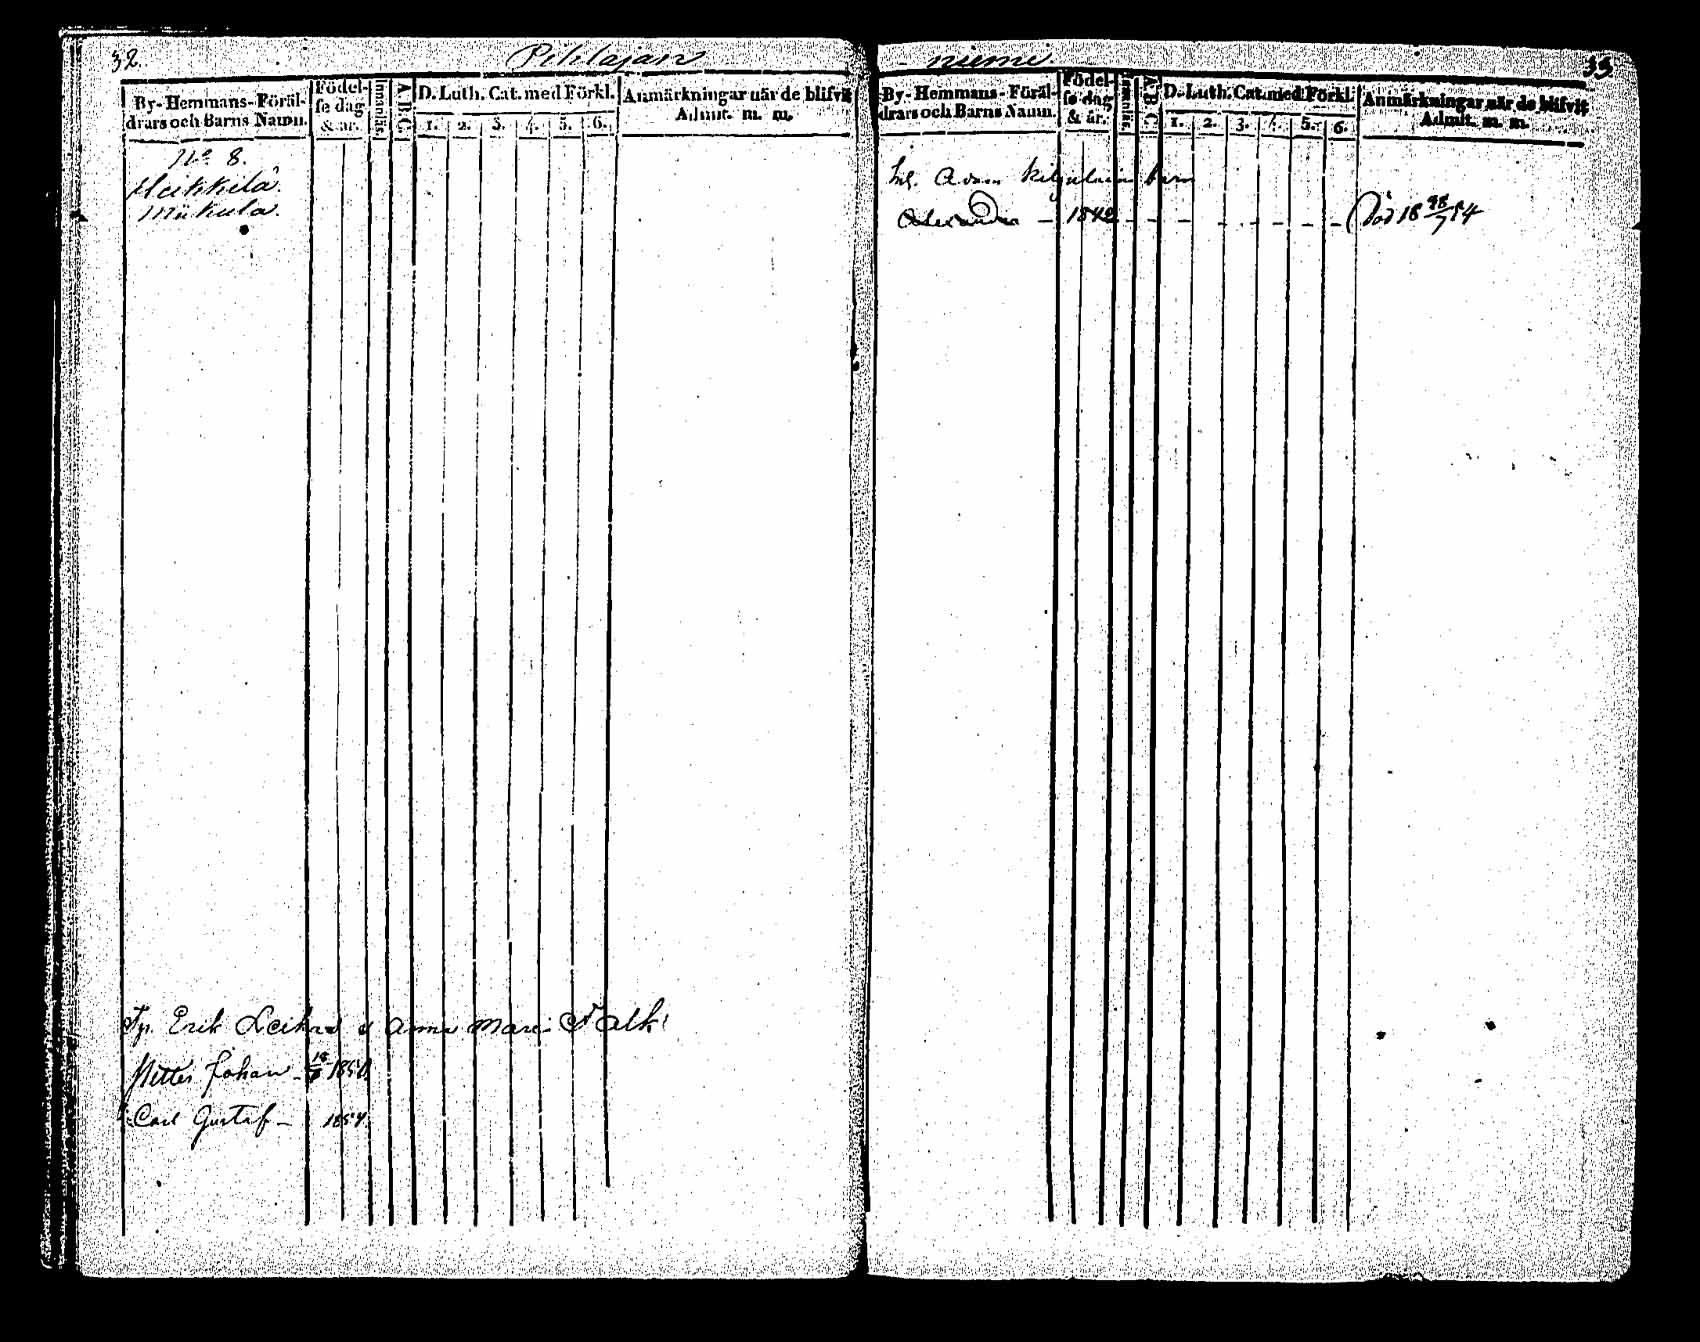 32.
Pihlajan
By- Hemmans- Föräl-
drars och Barns Namn.
Födel-
se dag
& år.
Innanläs.
A. B. C.
D. Luth. Cat. med Förkl.
1. 2. 3. 4. 5. 6.
Anmärkningar när de blifvit
Admit. m. m.
No 8.
Heikkilä.
Miikula.
Erik Leikas & Anna Maria Falk
Johan - 1850.
Carl Gustaf - 1854.
- niemi.
33
By- Hemmans- Föräl-
drars och Barns Namn.
Födel-
se dag
& år.
Innanläs.
A. B. C.
D. Luth. Cat. med Förkl.
1. 2. 3. 4. 5. 6.
Anmärkningar när de blifvit
Admit. m. m.
Adam barn
Alexandra - 1842 - - - - - - - - Död 18 28/7 54